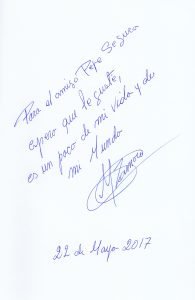 Para el amigo Pepe Seguro
espero que te guste,
es un poco de mi vida y de
mi Mundo
22 de Mayo 2017